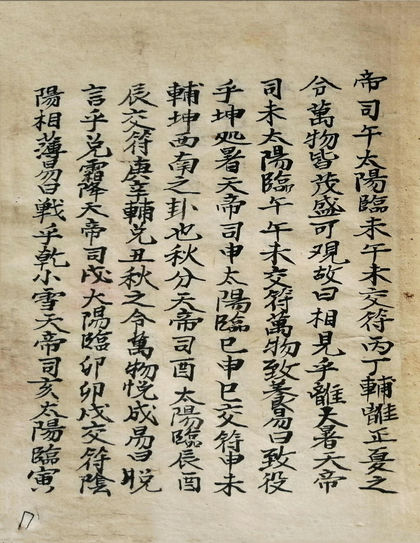 帝司午太陽臨未午未交符丙丁輔離正夏之
令萬物皆茂盛可观故曰相見乎離大暑天帝
司未太陽臨午午未交符萬物致養易曰致役
乎坤処暑天帝司申太陽臨巳申巳交符申未
輔坤西南之卦也秋分天帝司酉太陽臨辰酉
辰交符庚辛輔兌丑秋之令萬物悦成易曰脱
言乎兑霜降天帝司戌太陽臨卯卯戌交符陰
陽相薄易曰戦乎乾小雪天帝司亥太陽臨寅